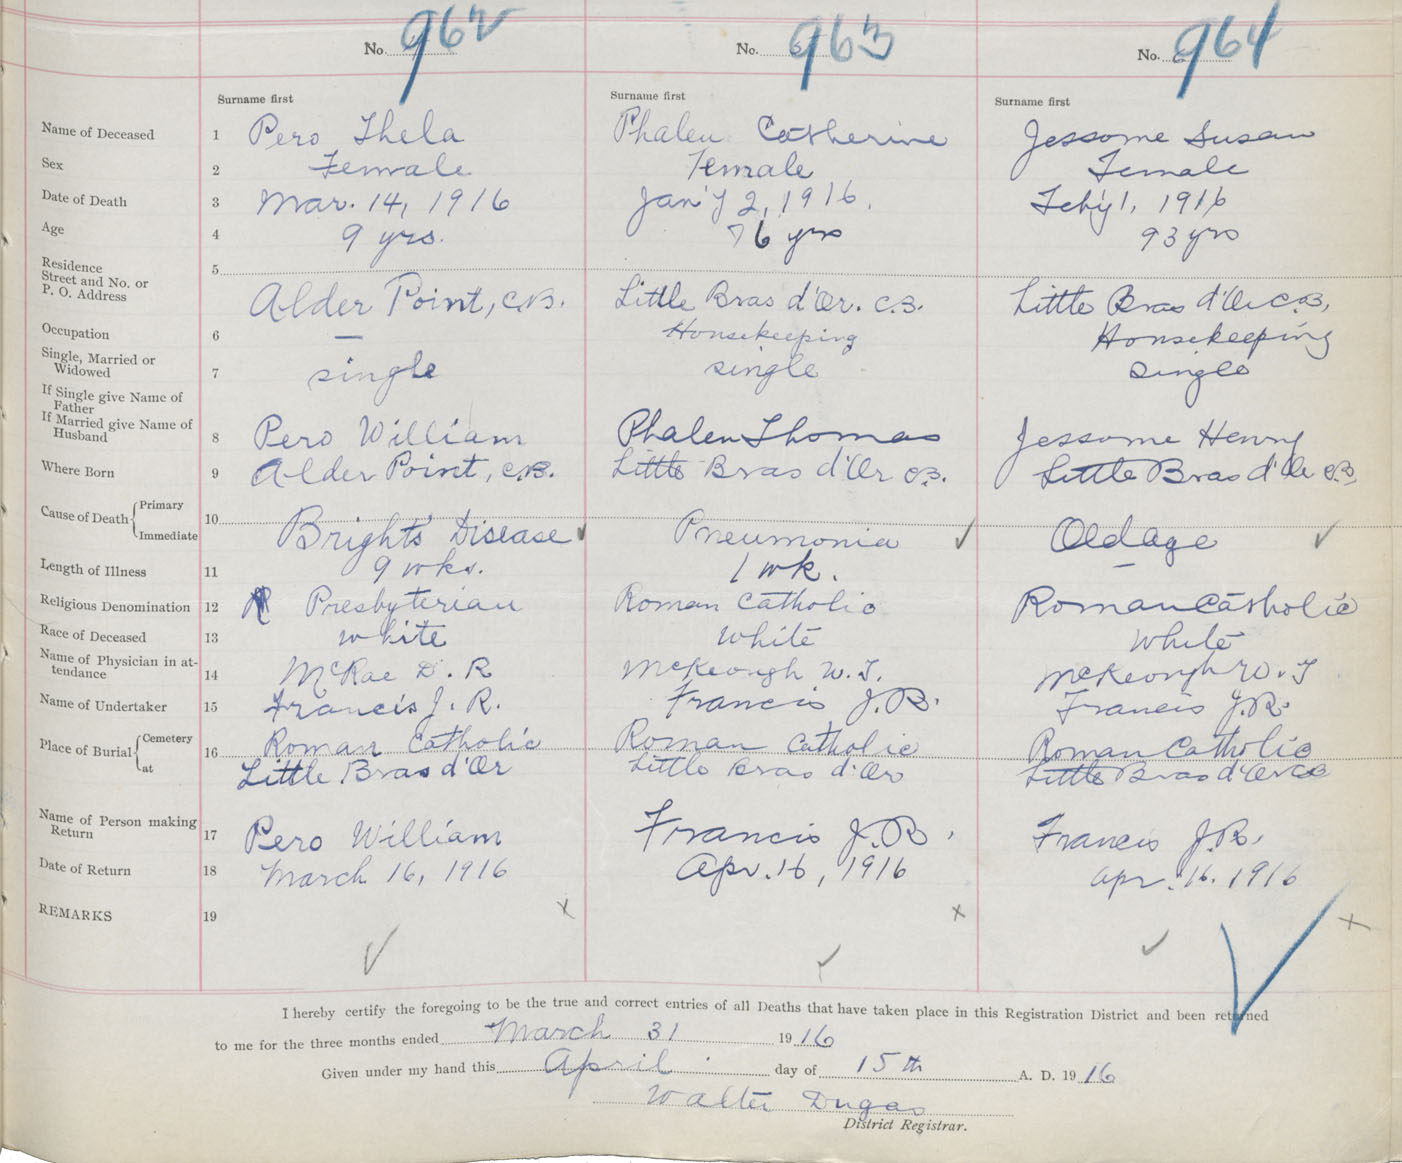 No. 962 No. 963 No. 964
Surname first Surname first Surname first
Name of Deceased 1 Pero Thela Phalen Catherine Jessome Susan
Sex 2 Female Female Female
Date of Death 3 Mar. 14, 1916 Jan'y 2, 1916. Feb'y 1, 1916
Age 4 9 yrs. 76 yrs 93 yrs
Residence 5
Street and No. or
P. O. Address Alder Point, C.B. Little Bras d'Or. C.B. Little Bras d'Or C.B.
Occupation 6 — Housekeeping Housekeeping
Single, Married or
Widowed 7 single single single
If Single give Name of
Father
If Married give Name of
Husband 8 Pero William Phalen Thomas Jessome Henry
Where Born 9 Alder Point, C.B. Little Bras d'Or C.B. Little Bras d'Or C.B.
Cause of Death Primary 10
Immediate Bright's Disease Pneumonia Old age
Length of Illness 11 9 wks. 1 wk. —
Religious Denomination 12 Presbyterian Roman Catholic Roman Catholic
Race of Deceased 13 white white white
Name of Physician in at-
tendance 14 McRae D. R McKeough W. J. McKeough W. J
Name of Undertaker 15 Francis J. R. Francis J. R. Francis J. R.
Place of Burial Cemetery 16 Roman Catholic Roman Catholic Roman Catholic
at Little Bras d'Or Little Bras d'Or Little Bras d'Or CB
Name of Person making
Return 17 Pero William Francis J. R. Francis J. R.
Date of Return 18 March 16, 1916 Apr. 16, 1916 Apr. 16. 1916
REMARKS 19 x x x
I hereby certify the foregoing to be the true and correct entries of all Deaths that have taken place in this Registration District and been returned
to me for the three months ended March 31 1916
Given under my hand this April day of 15th A. D. 1916
Walter Dugas
District Registrar.